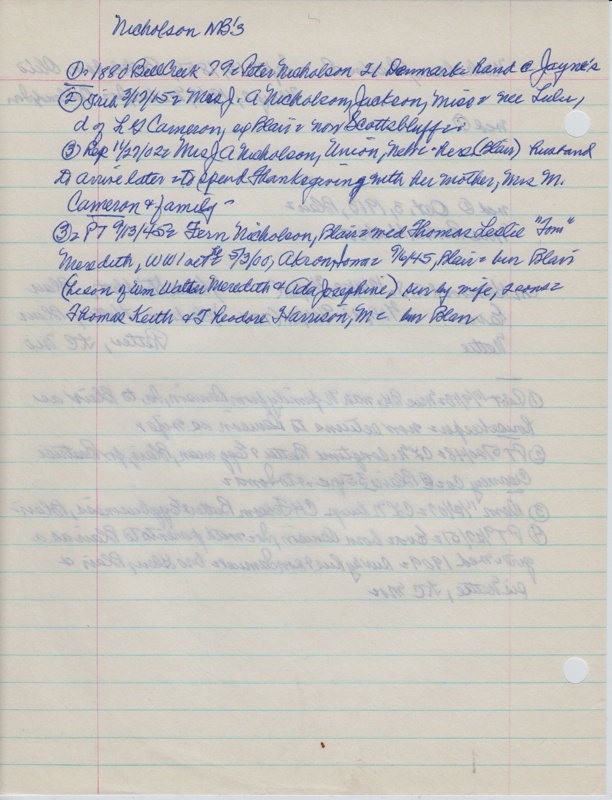 Nicholson NB's
① 1880 Bell Creek 79 Peter Nicholson 21 Denmark hand @ Jayne's
② 3/17/15 Mrs J. A Nicholson, Jackson, Miss nee Lulu,
d of L G Cameron, ex Blair & now Scottsbluff
③ Rep 11/27/02 Mrs J A Nicholson, Union, Nebr Res (Blair) husband
to arrive later to spend Thanksgiving with her mother, Mrs. M.
Cameron & family
③ PT 9/13/45 Fern Nicholson, Blair med Thomas Leslie "Tom"
Meredith, WW1 vet 5/3/00, Akron, Iowa 9/6/45, Blair bur Blair
(he son of Wm Walter Meredith & Ada Josephine) sur by wife, 2 sons
Thomas Keith & Theodore Harrison, bur Blair